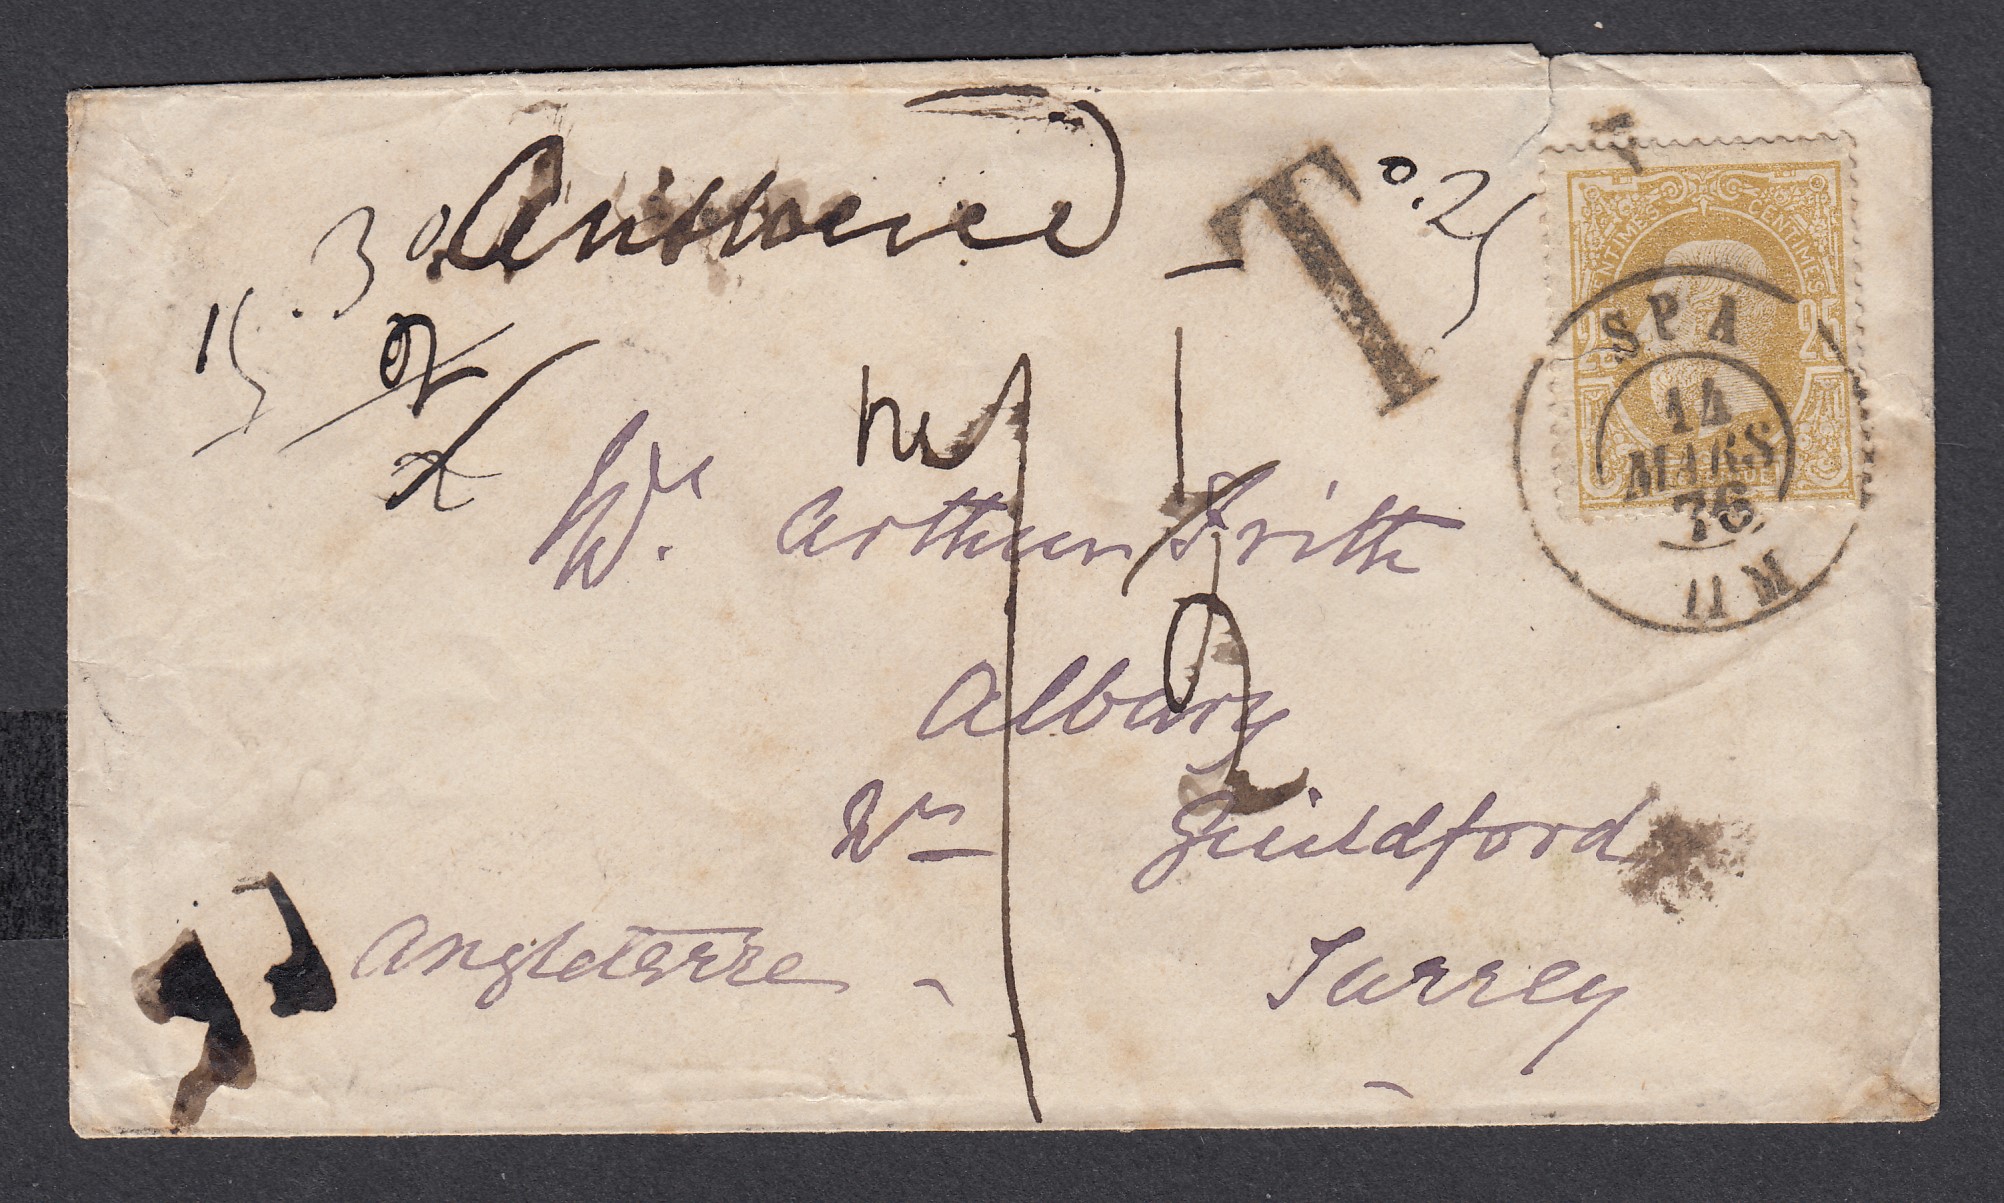 T
0.25
15.30
CENTIMES CENTIMES
25 25
SPA
14
MARS
76
11 M
Mr. Arthur Frith
Albury
Nr Guildford
Angleterre - Surrey